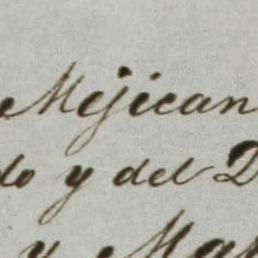 Mejican
do y del D
y Ma